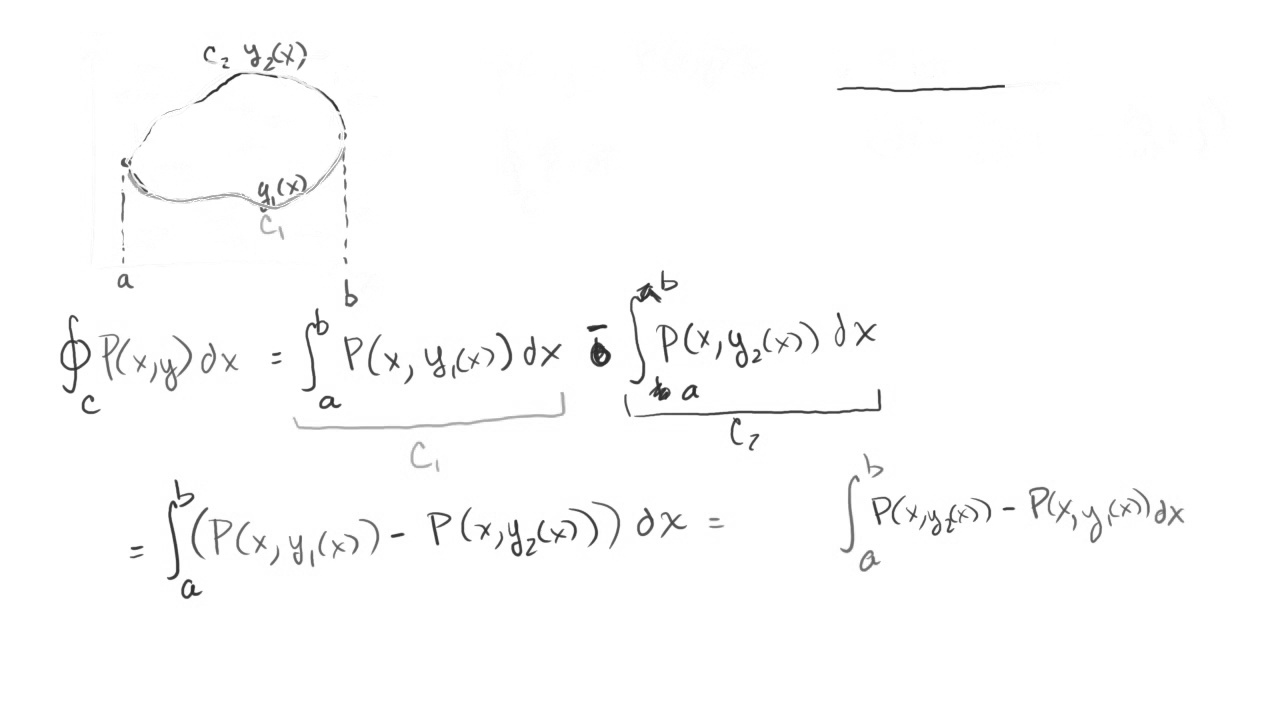 C₂ y₂(x)
y₁(x)
C₁
a
b
∮_C P(x,y) dx = ∫_a^b P(x, y₁(x)) dx - ∫_a^b P(x, y₂(x)) dx
C₁ C₂
= ∫_a^b (P(x, y₁(x)) - P(x, y₂(x))) dx = ∫_a^b P(x, y₂(x)) - P(x, y₁(x)) dx